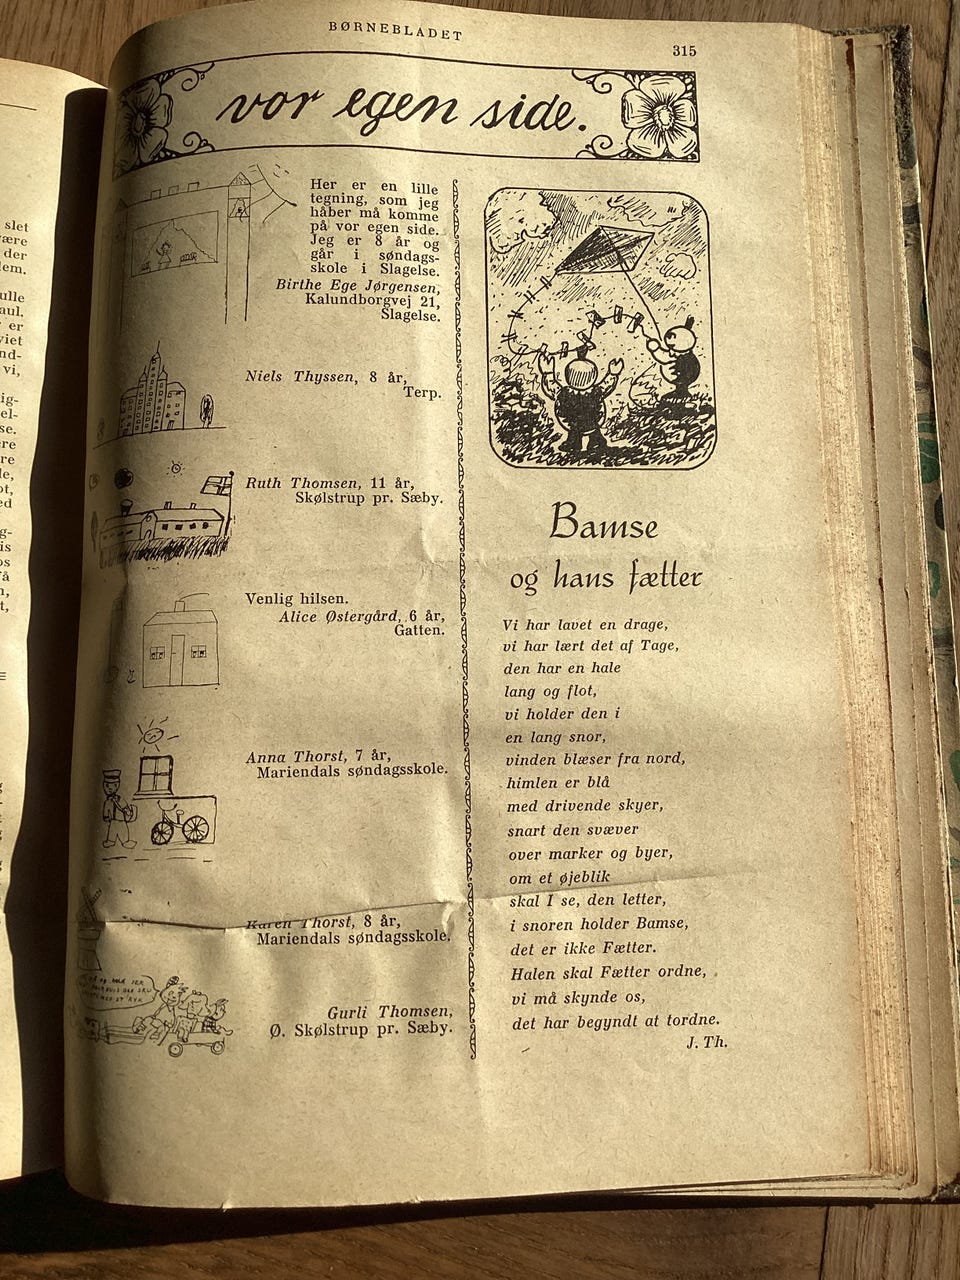 BØRNEBLADET
315
vor egen side.
Her er en lille
tegning, som jeg
håber må komme
på vor egen side.
Jeg er 8 år og
går i søndags-
skole i Slagelse.
Birthe Ege Jørgensen,
Kalundborgvej 21,
Slagelse.
Niels Thyssen, 8 år,
Terp.
Ruth Thomsen, 11 år,
Skølstrup pr. Sæby.
Venlig hilsen.
Alice Østergård, 6 år,
Gatten.
Anna Thorst, 7 år,
Mariendals søndagsskole.
Karen Thorst, 8 år,
Mariendals søndagsskole.
Gurli Thomsen,
Ø. Skølstrup pr. Sæby.
Bamse
og hans fætter
Vi har lavet en drage,
vi har lært det af Tage,
den har en hale
lang og flot,
vi holder den i
en lang snor,
vinden blæser fra nord,
himlen er blå
med drivende skyer,
snart den svæver
over marker og byer,
om et øjeblik
skal I se, den letter,
i snoren holder Bamse,
det er ikke Fætter.
Halen skal Fætter ordne,
vi må skynde os,
det har begyndt at tordne.
J. Th.
slet
være
der
lem.
ulle
aul.
er
viet
nd-
vi,